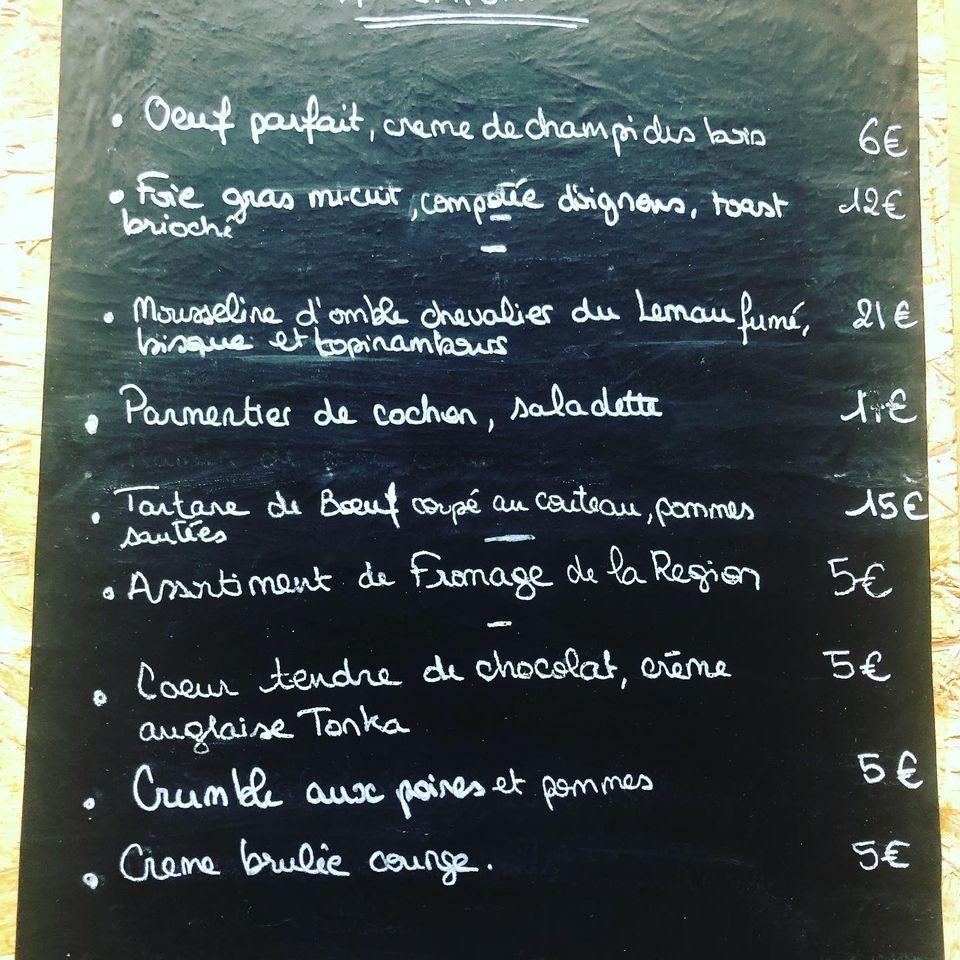 • Oeuf parfait, creme de champi des bois 6€
• Foie gras mi-cuit, compotée d'oignons, toast 12€
brioché
• Mousseline d'omble chevalier du Leman fumé, 21€
bisque et topinambours
• Parmentier de cochon, saladette
• Tartare de Boeuf coupé au couteau, pommes 15€
sautées
• Assortiment de Fromage de la Region 5€
• Coeur tendre de chocolat, crème 5€
anglaise Tonka
• Crumble aux poires et pommes 5€
• Creme brulée courge. 5€